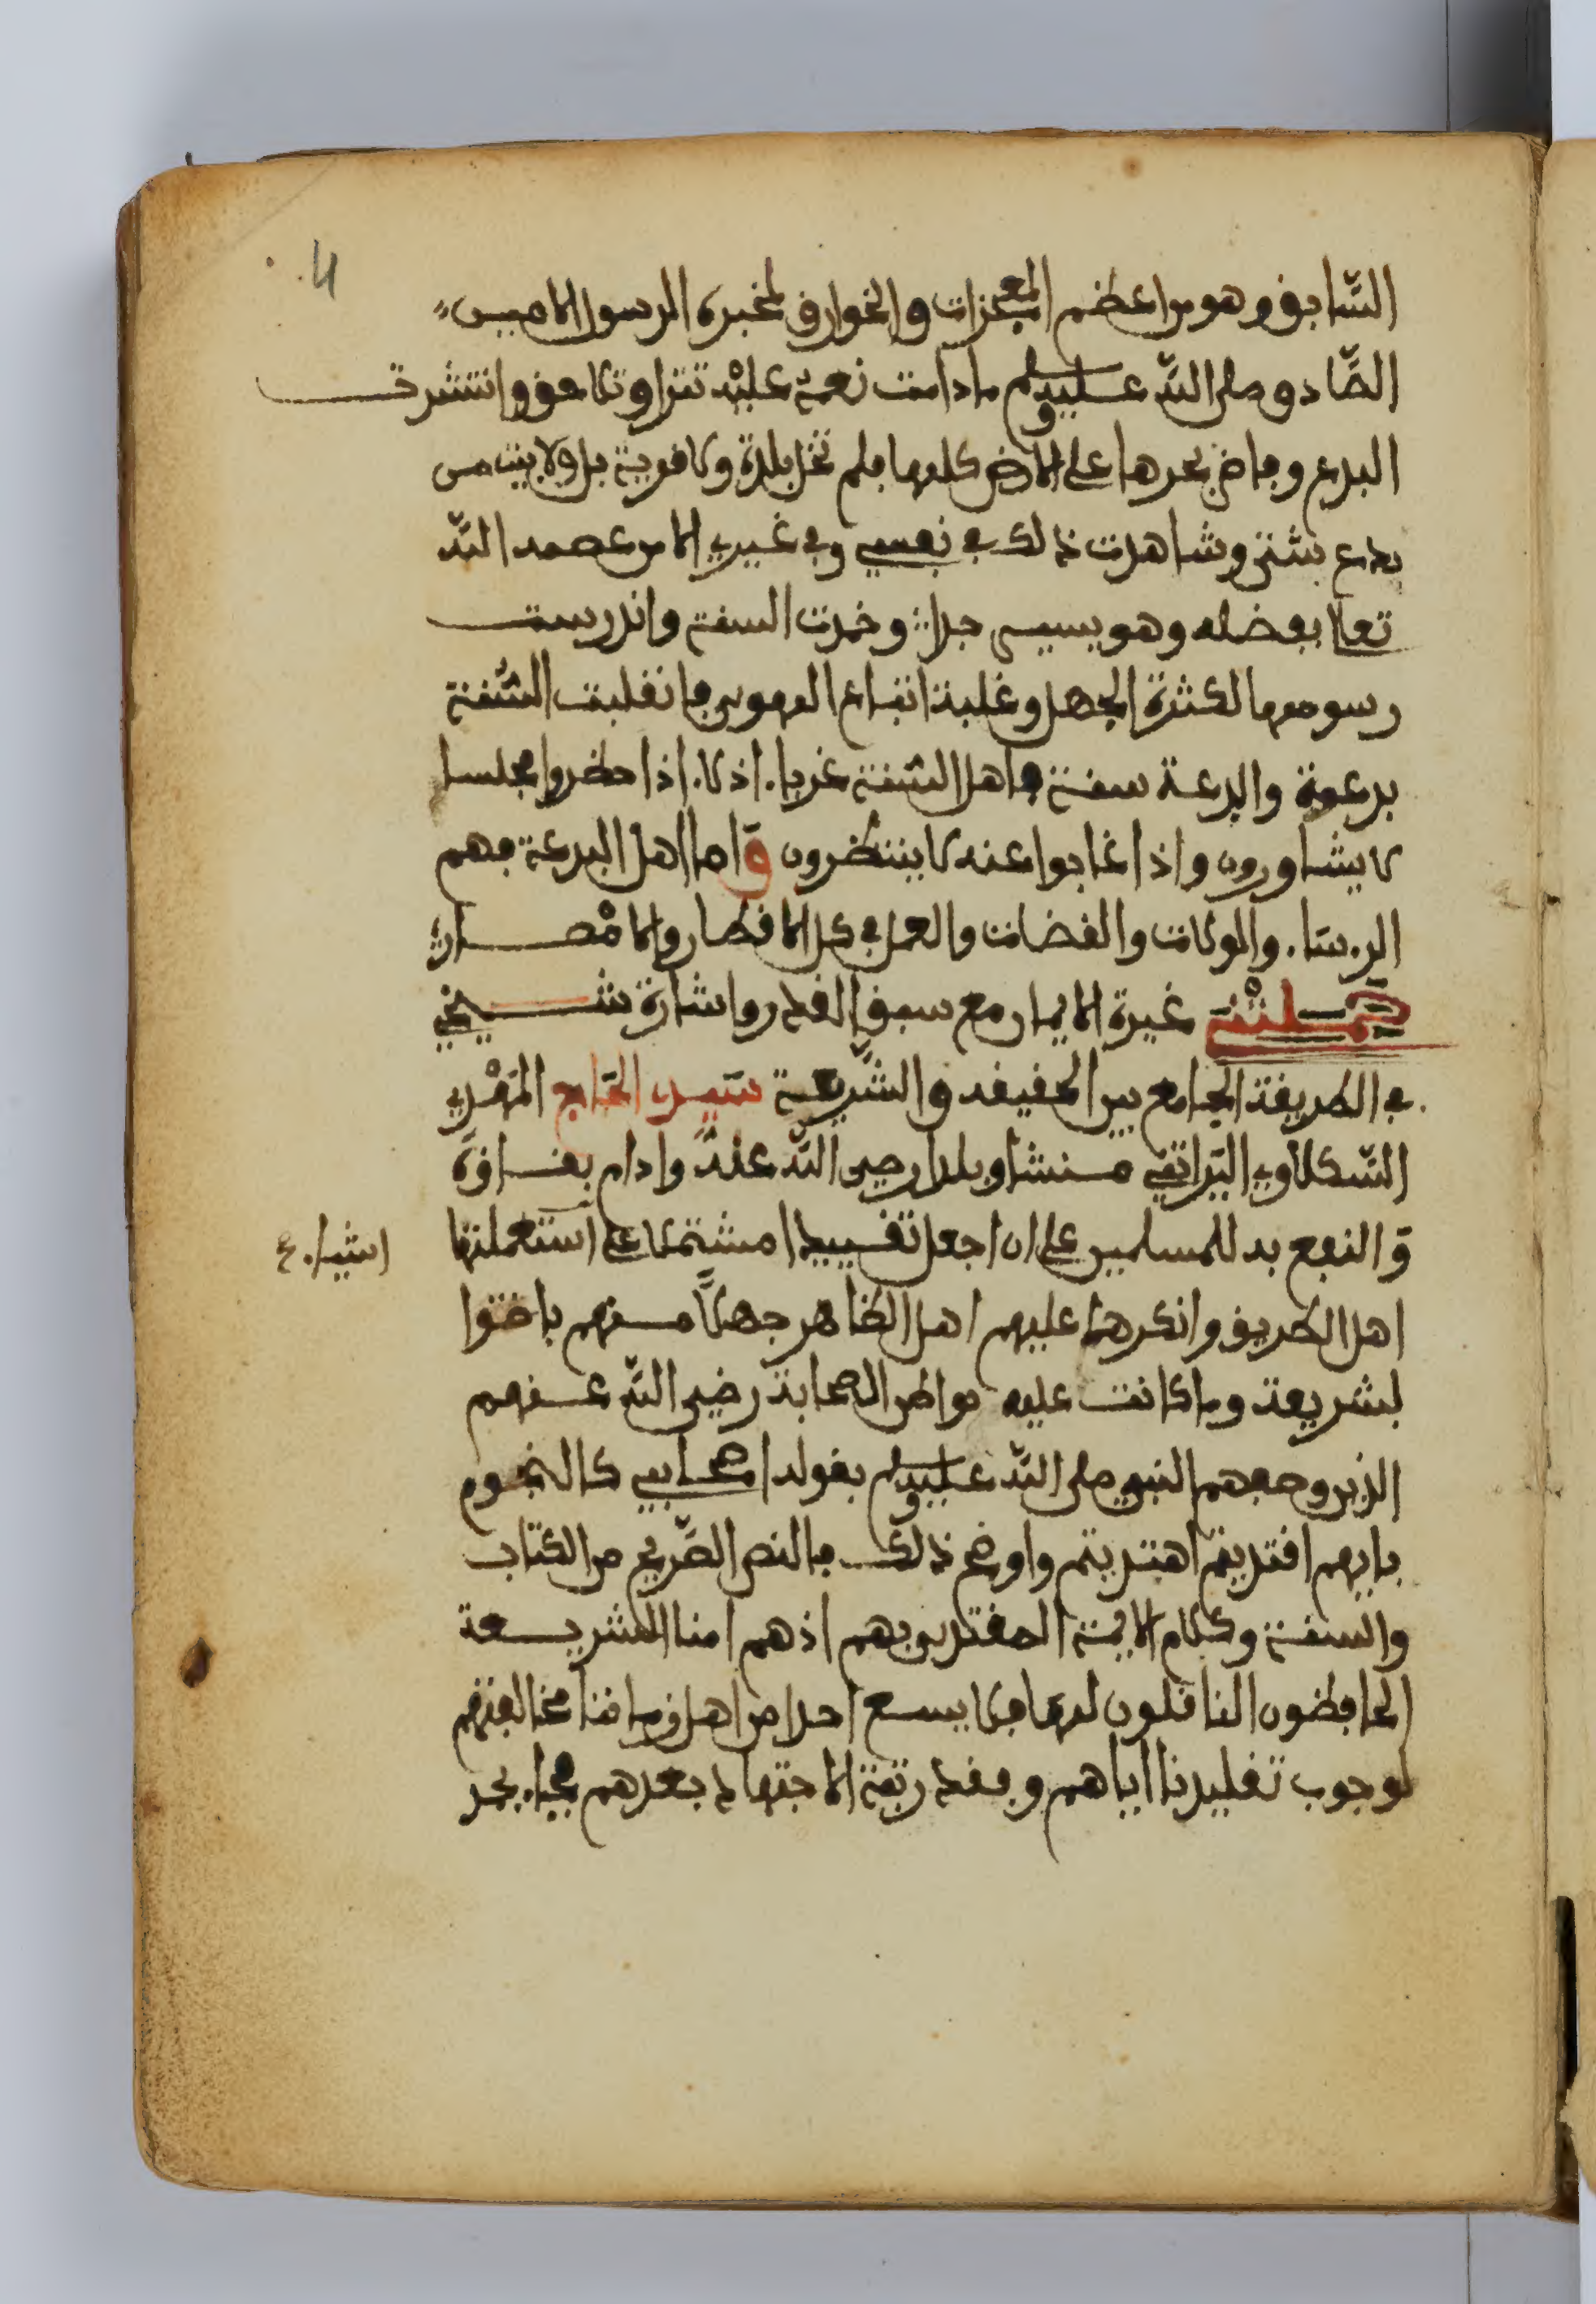 السّابق وهو من اعظم المعجزات والخوارق لمخبره الرسول الامين
الصّادق صلى اللّه عليه وسلم ما دامت نعمة عليْه تترا وتلاحق وانتشرت
البدع وفاض بحرها على الارض كلها فلم تخل بلدة ولا قرية بل ولا بيت من
بدع شتى وشاهدت ذلك في نفسي وفي غيري الا من عصمه اللّه
تعالى بفضله وهو يسير جدا وخمدت السنة واندرست
رسومها لكثرة الجهل وغلبة اتباع الهوى فانقلبت السّنة
بدعة والبدعة سنة فاهل السّنة غرباء اذلاء اذا حضروا مجلسا
لا يشاورون واذا غابوا عنه لا ينتظرون وَاما اهل البدعة فهم
الرءساء والولات والقضات والعمل في كل الاقطار والامْصار
حملتْني غيرة الايمان مع سبق القدر واشارة شيخي
في الطريقة الجامع بين الحقيقه والشّريعة سَيدي الحَاج المَهْدي
السّكلاوي اليَراتني منشأ وبلدا رضي اللّه عنهُ وادام بقاءه
وَالنفع به للمسلمين على ان اجعل تقييدا مشتملا على استعملتها
اشياء ع
اهل الطريق وانكرها عليهم اهل الظاهر جهلاً منهم باخذوا
لشريعة وما كانت عليه بواطن الصحابة رضي اللّه عنهم
الذين وصفهم النبي صلى اللّه عليه وسلم بقوله اصحابي كالنجوم
بايهم اقتديتم اهتديتم واوضح ذلك بالنص الصّريح من الكتاب
والسنة وكلام الايمة المقتدى بهم اذ هم امنا الشريعة
الحافظون الناقلون لها فلا يسع احدا من اهل زماننا مخالفتهم
لوجوب تقليدنا اياهم وبفقد رتبة الاجتهاد بعدهم فجاء بحمد